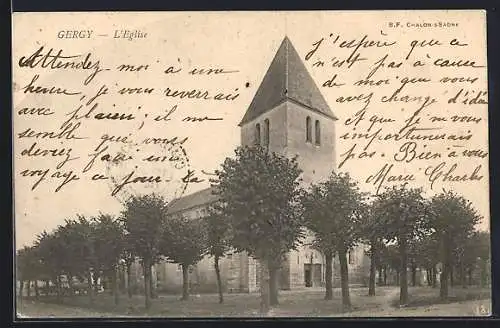 GERGY — L'Eglise
B.F. CHALON-S-SAÔNE
Attendez moi à une
heure, je vous reverrais
avec plaisir; il me
semble que vous
devriez faire un
voyage par ici
J'espère que ce
n'est pas à cause
de moi que vous
avez changé d'idée
et que je vous
importunerais
pas. Bien à vous
Marie Charles